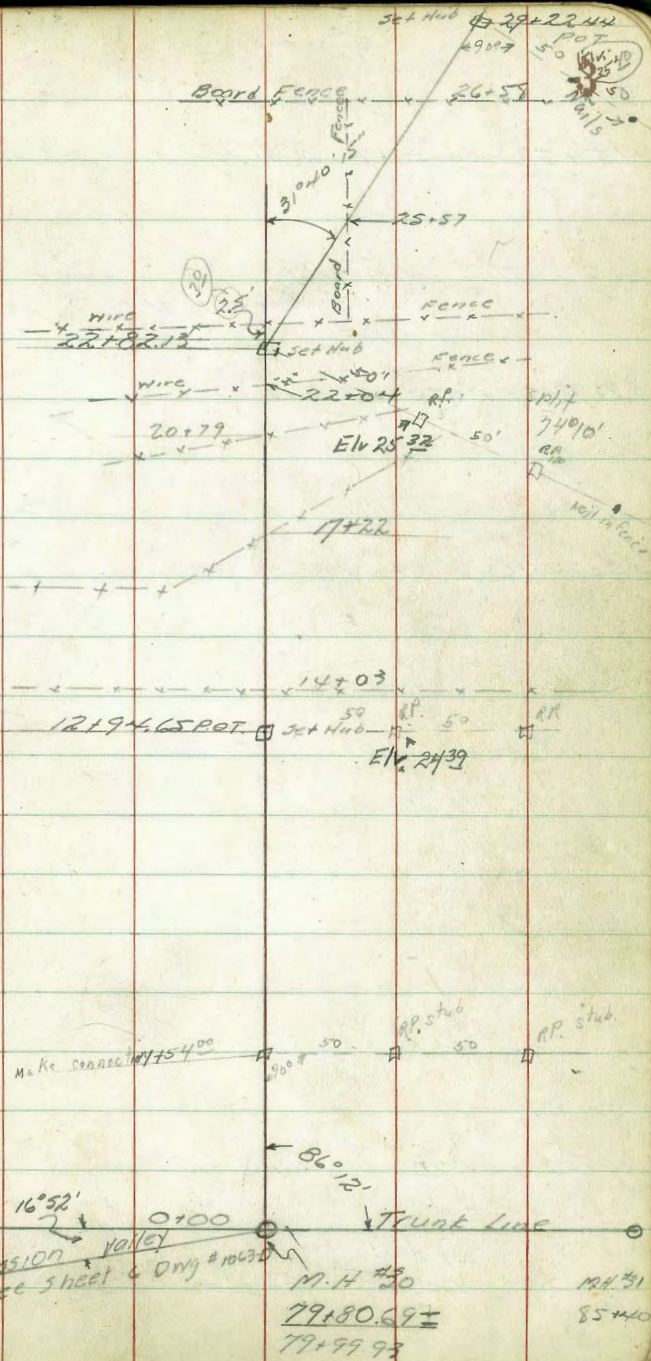 Set Hub 29+22.44
POT
<90°> 50
25
50
Nails
Board Fence 26+58
Board Fence
31°40'
15'
25+57
30
25'
Wire Fence
22+82.13
Set Hub
Fence
Wire 50'
22+04
20+79
R.P.
Elv 25 32
50'
Split
74°10'
R.P.
Nail in Fence
17+22
14+03
12+94.65 P.O.T. Set Hub 50 R.P. 50 R.P.
Elv. 24 39
R.P. stub R.P. stub
Make connection 50 50
+54 00
90°
86°12'
16°52'
0+00 Trunk Line
ssion Valley
ee sheet 6 Dwg #1063-D
M.H #30 M.H. #31
79+80.69 = 85+40
79+99.93